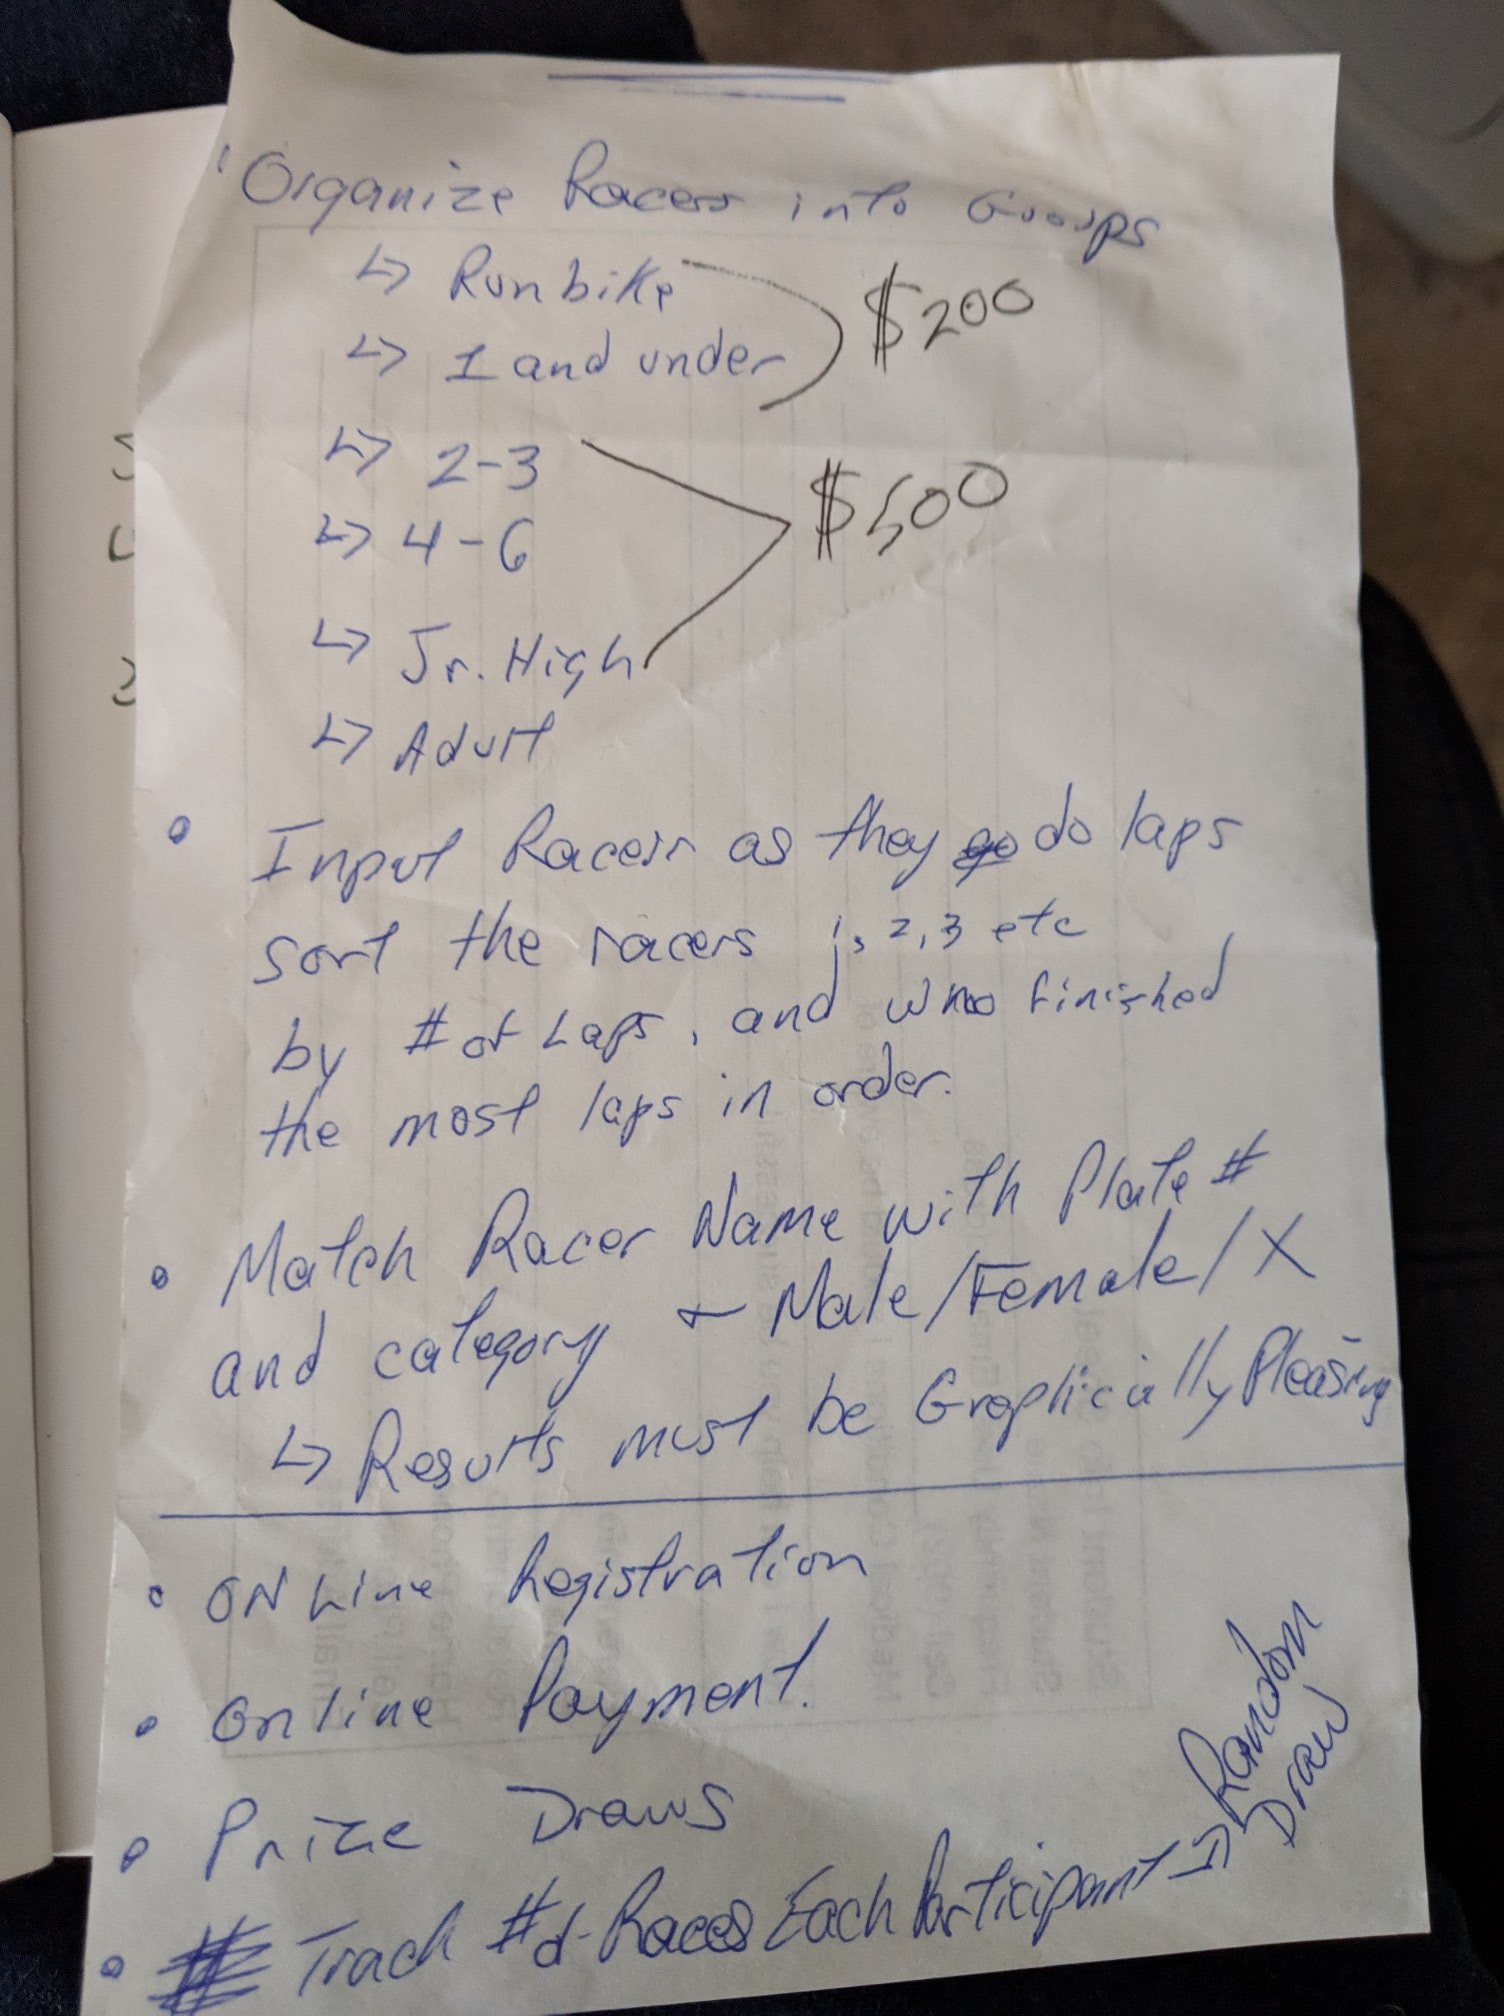 • Organize Racers into Groups
↳ Run bike
$200
↳ 1 and under
↳ 2-3
$500
↳ 4-6
↳ Jr. High
↳ Adult
• Input Racers as they go do laps
sort the racers 1, 2, 3 etc
by # of Laps, and who finished
the most laps in order.
• Match Racer Name with Plate #
and category + Male/Female/X
↳ Results must be Graphically Pleasing
• ONLine Registration
• Online Payment.
• Prize Draws
• Track # of Races Each Participant → Random
Draw